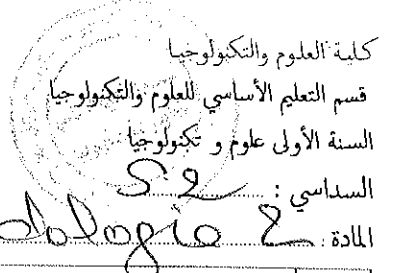 كلية العلوم والتكنولوجيا
قسم التعليم الأساسي للعلوم والتكنولوجيا
السنة الأولى علوم و تكنولوجيا
السداسي : S2
المادة : dologie 2